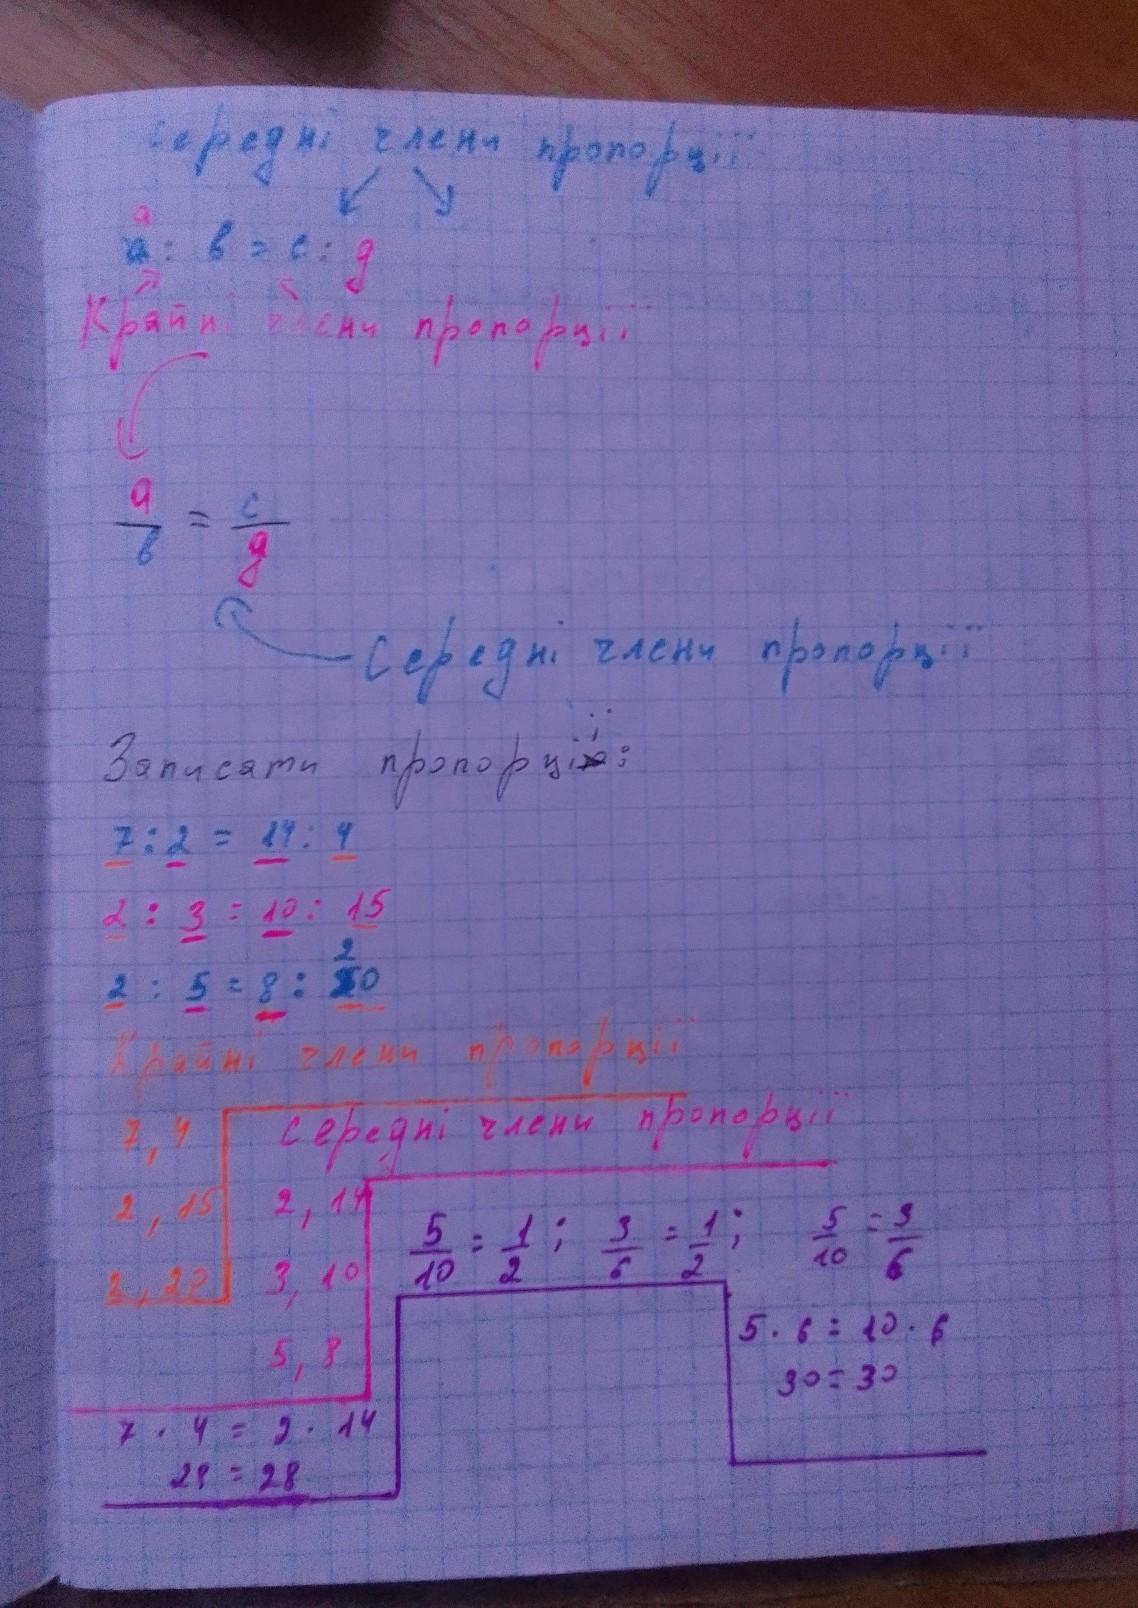 Середні члени пропорції
a
a : b = c : g
Крайні члени пропорції
a/b = c/g
Середні члени пропорції
Записати пропорції:
7 : 2 = 14 : 4
2 : 3 = 10 : 15
2 : 5 = 8 : 20
Крайні члени пропорції
7, 4
2, 15
2, 20
Середні члени пропорції
2, 14
3, 10
5, 8
5/10 = 1/2 ; 3/6 = 1/2 ; 5/10 = 3/6
5 · 6 = 10 · 6
30 = 30
7 · 4 = 2 · 14
28 = 28